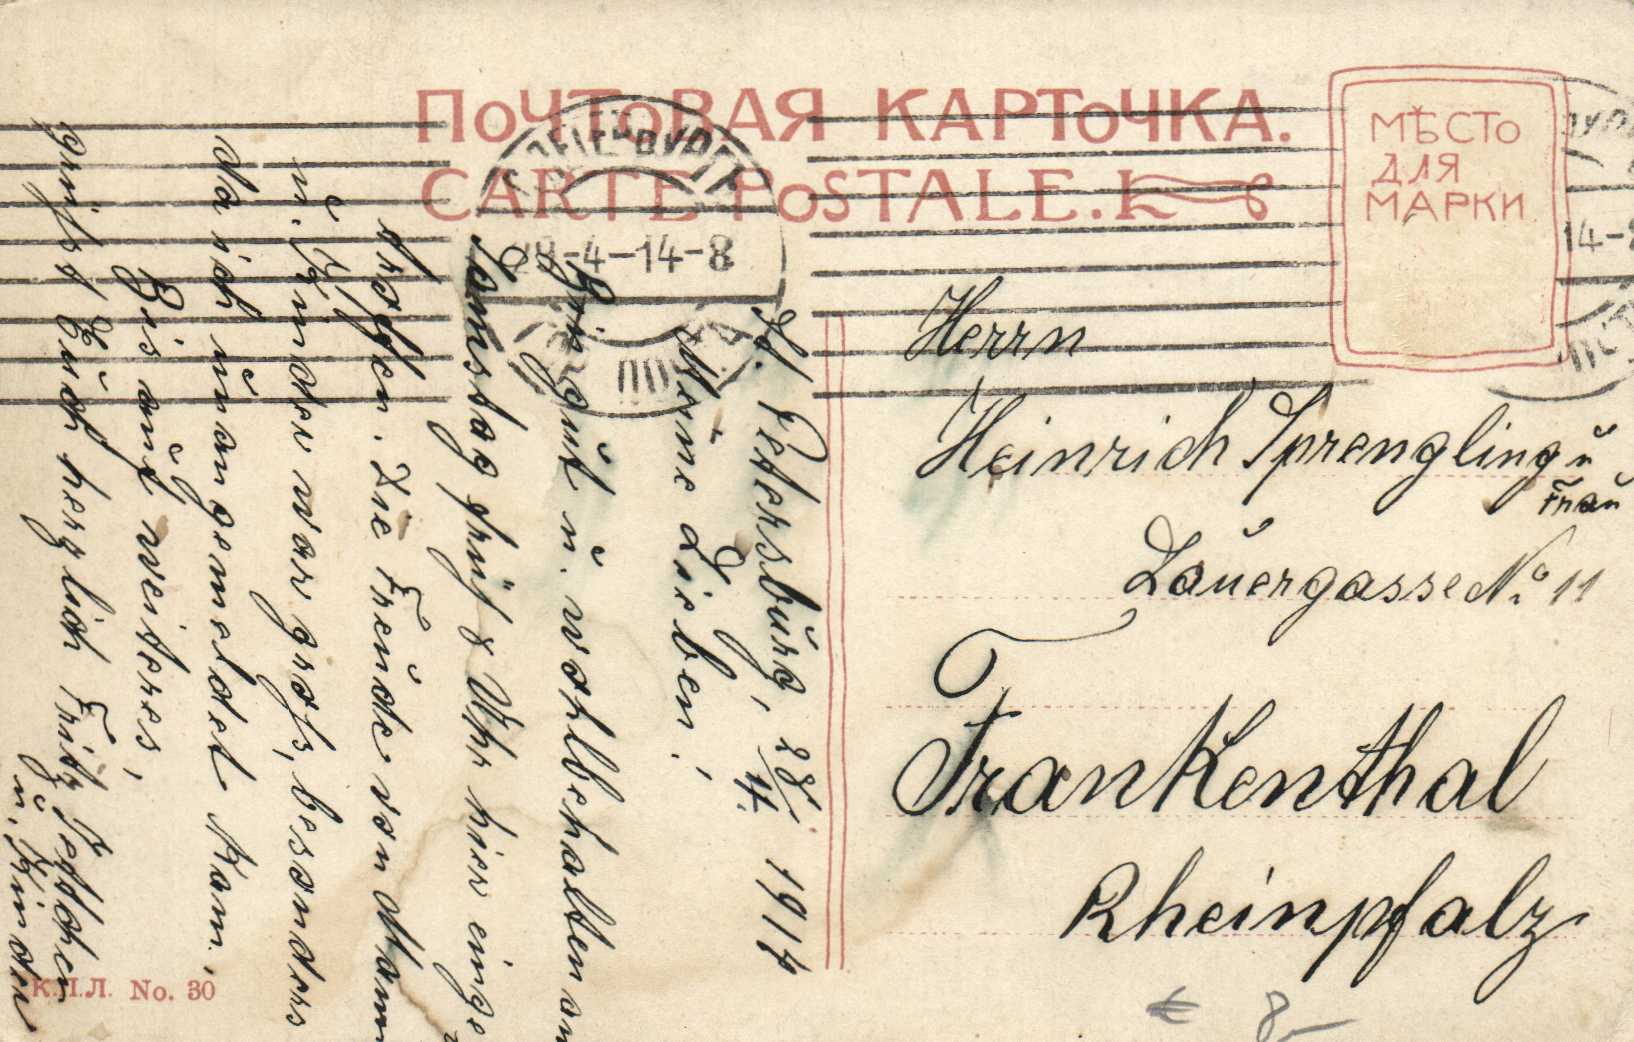 ПОЧТОВАЯ КАРТОЧКА.
CARTE POSTALE.
МѢСТО
ДЛЯ
МАРКИ
28-4-14-8
14-8
St. Petersburg, 28/4. 1914
Meine Lieben!
Bin gut u. wohlbehalten am
Samstag früh 8 Uhr hier einge
troffen. Die Freude von Mann
u. Kinder war groß, besonders
da ich unangemeldet kam.
Bis auf weiteres,
grüßt Euch herzlich Fritz
u. Kinder
Herrn
Heinrich Sprengling u
Frau
Lauergasse No 11
Frankenthal
Rheinpfalz
No. 30
€ 8,-